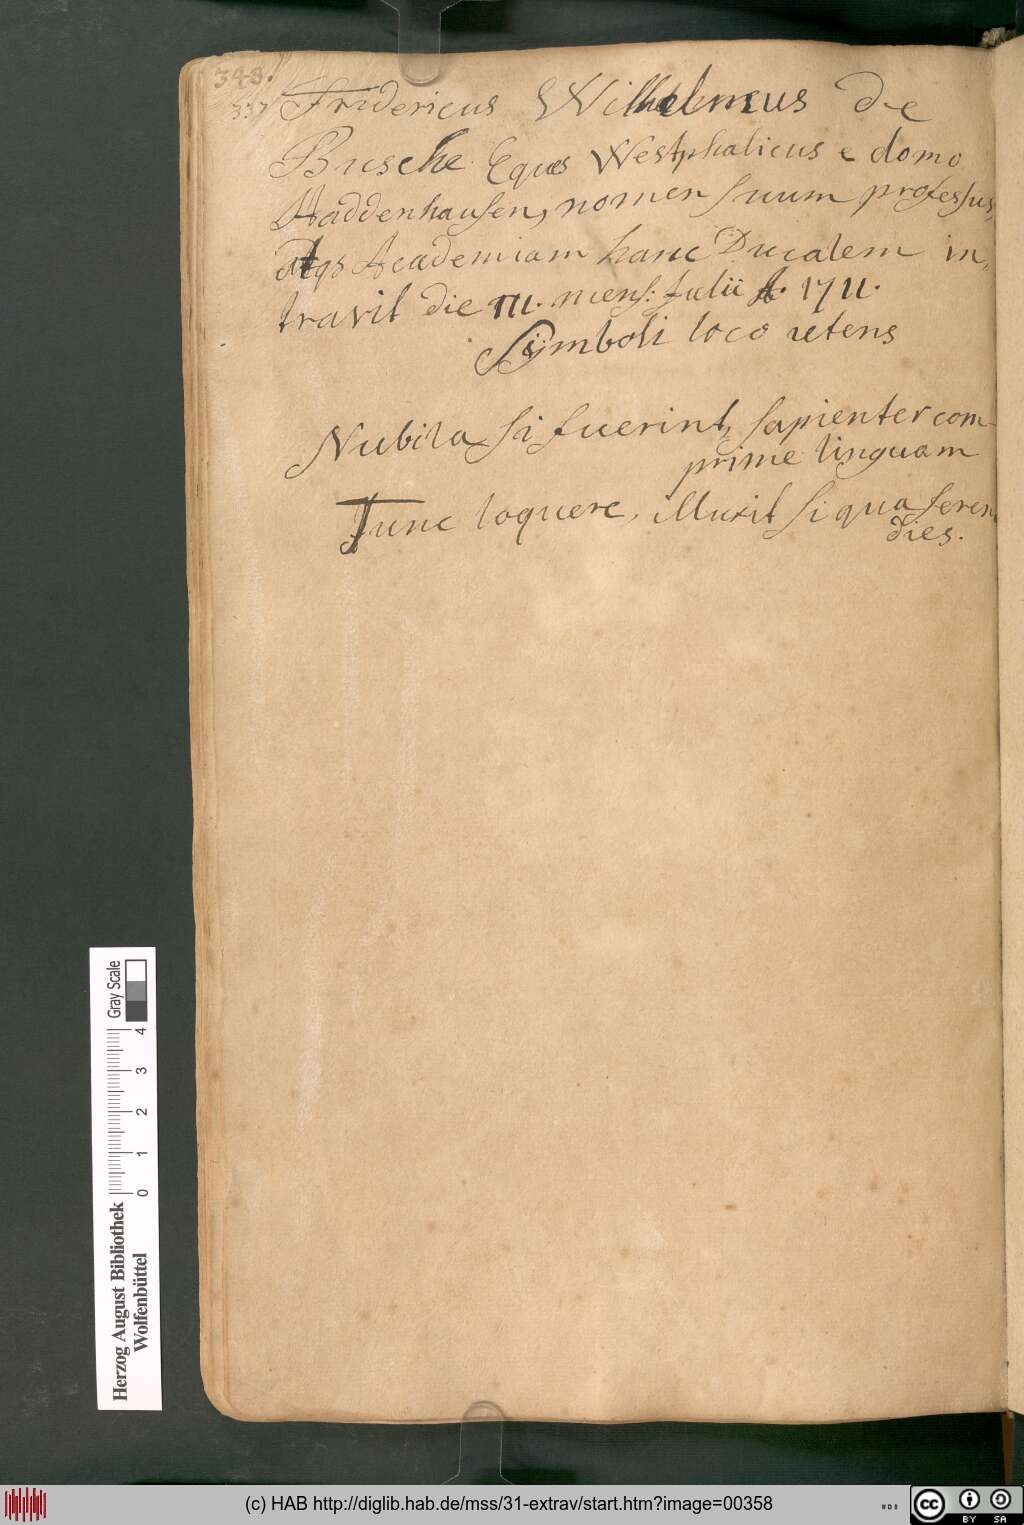 348.
337
Fridericus Wilhelmus de
Busche. Eques Westphalicus e domo
Haddenhausen, nomen suum professus,
atqs Academiam hanc Ducalem in,
travit die III. mens: Julii A. 1711.
Symboli loco utens
Nubila si fuerint, sapienter com-
prime linguam
Tunc loquere, illuxit si qua serena
dies.
Herzog August Bibliothek
Wolfenbüttel
0 1 2 3 4
Gray Scale
(c) HAB http://diglib.hab.de/mss/31-extrav/start.htm?image=00358
cc BY SA